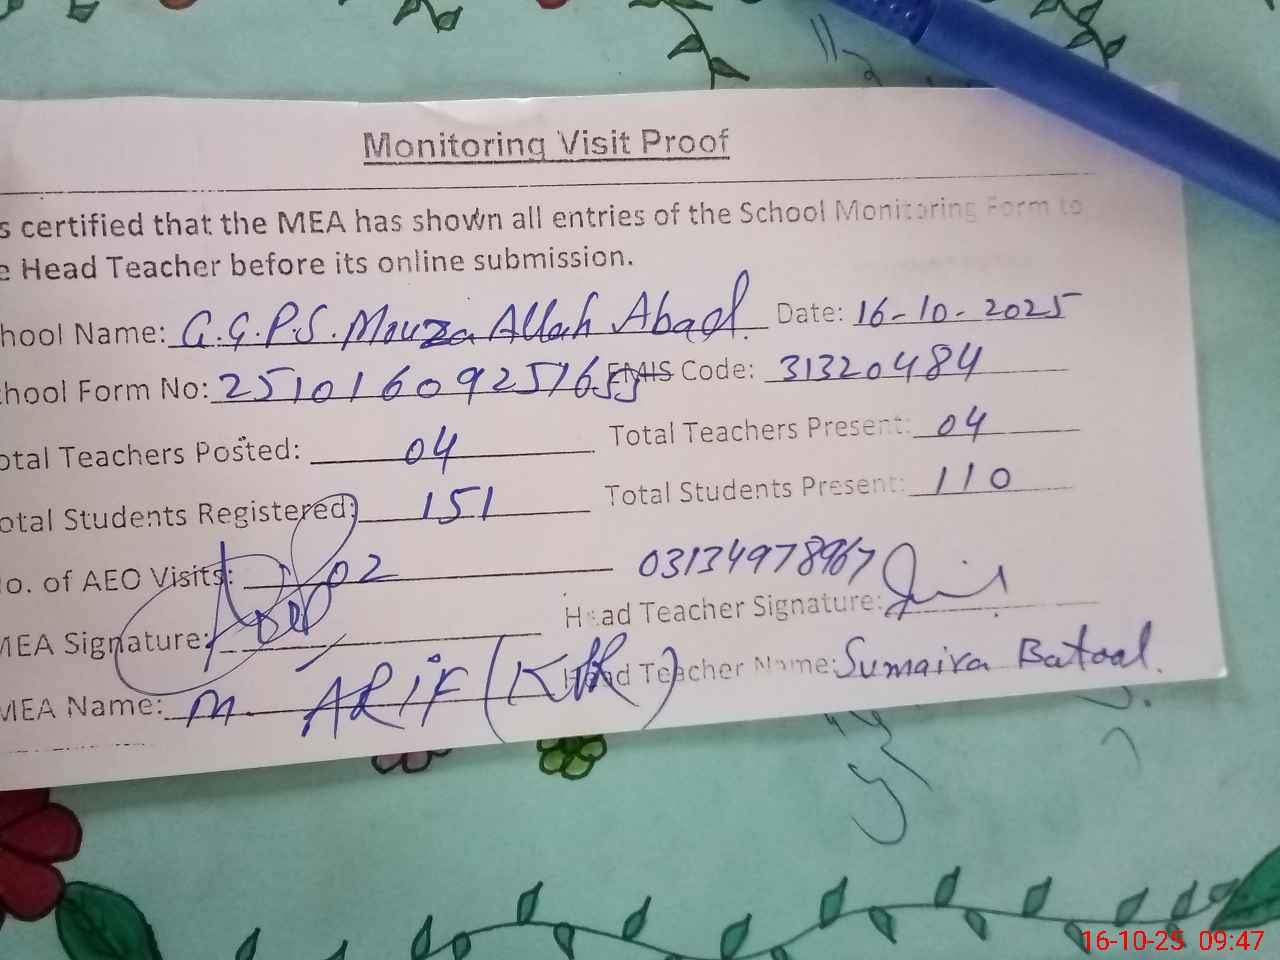 Monitoring Visit Proof
s certified that the MEA has shown all entries of the School Monitoring Form to
e Head Teacher before its online submission.
hool Name: G.G.P.S. Mouza Allah Abad. Date: 16-10-2025
hool Form No: 2510160925165 EMIS Code: 31320484
otal Teachers Posted: 04 Total Teachers Present: 04
otal Students Registered: 151 Total Students Present: 110
o. of AEO Visits: 02 03134978967
MEA Signature: Head Teacher Signature:
MEA Name: M. ARIF Head Teacher Name: Sumaira Batool.
16-10-25 09:47